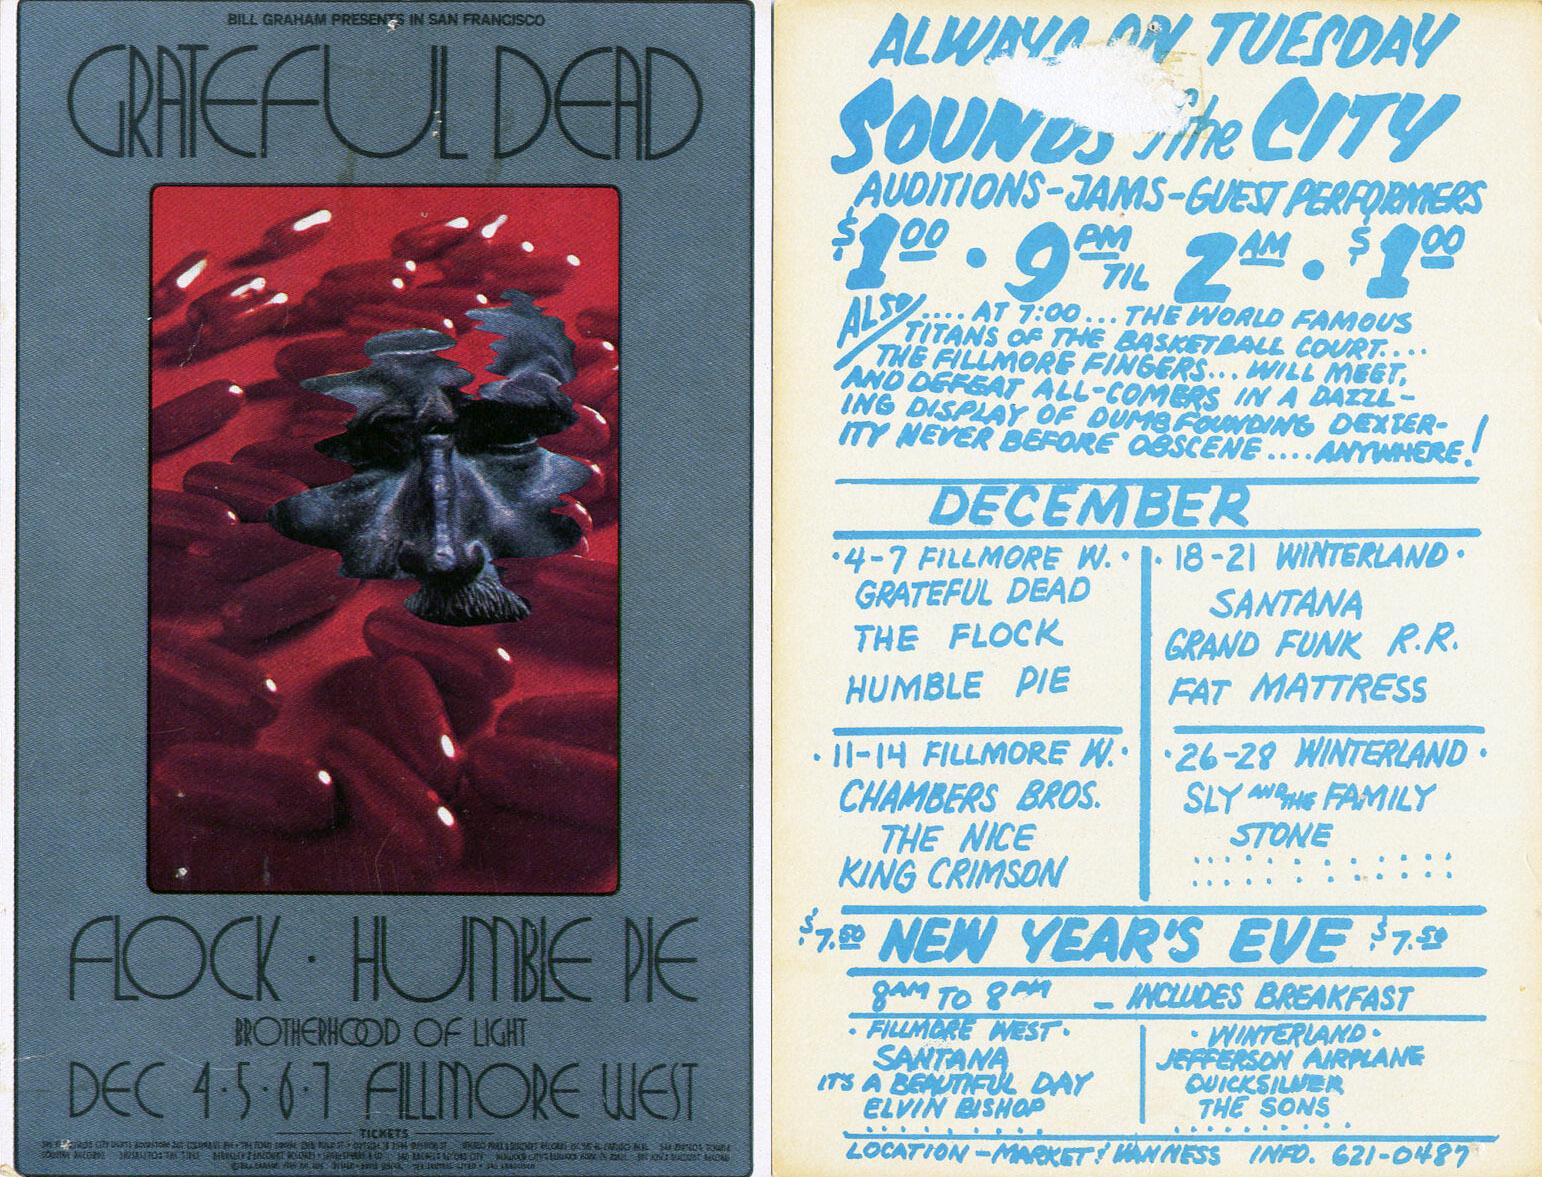 BILL GRAHAM PRESENTS IN SAN FRANCISCO
GRATEFUL DEAD
FLOCK · HUMBLE PIE
BROTHERHOOD OF LIGHT
DEC 4·5·6·7 FILLMORE WEST
TICKETS
ALWAYS ON TUESDAY
SOUNDS of the CITY
AUDITIONS-JAMS-GUEST PERFORMERS
$1.00 • 9 PM TIL 2 AM • $1.00
ALSO/.... AT 7:00... THE WORLD FAMOUS
TITANS OF THE BASKETBALL COURT....
THE FILLMORE FINGERS... WILL MEET,
AND DEFEAT ALL-COMERS IN A DAZZL-
ING DISPLAY OF DUMBFOUNDING DEXTER-
ITY NEVER BEFORE OBSCENE....ANYWHERE!
DECEMBER
·4-7 FILLMORE W.·
GRATEFUL DEAD
THE FLOCK
HUMBLE PIE
·11-14 FILLMORE W.·
CHAMBERS BROS.
THE NICE
KING CRIMSON
·18-21 WINTERLAND·
SANTANA
GRAND FUNK R.R.
FAT MATTRESS
·26-28 WINTERLAND·
SLY AND THE FAMILY
STONE
$7.50 NEW YEAR'S EVE $7.50
8AM TO 8PM - INCLUDES BREAKFAST
·FILLMORE WEST·
SANTANA
IT'S A BEAUTIFUL DAY
ELVIN BISHOP
·WINTERLAND·
JEFFERSON AIRPLANE
QUICKSILVER
THE SONS
LOCATION-MARKET/VANNESS INFO. 621-0487